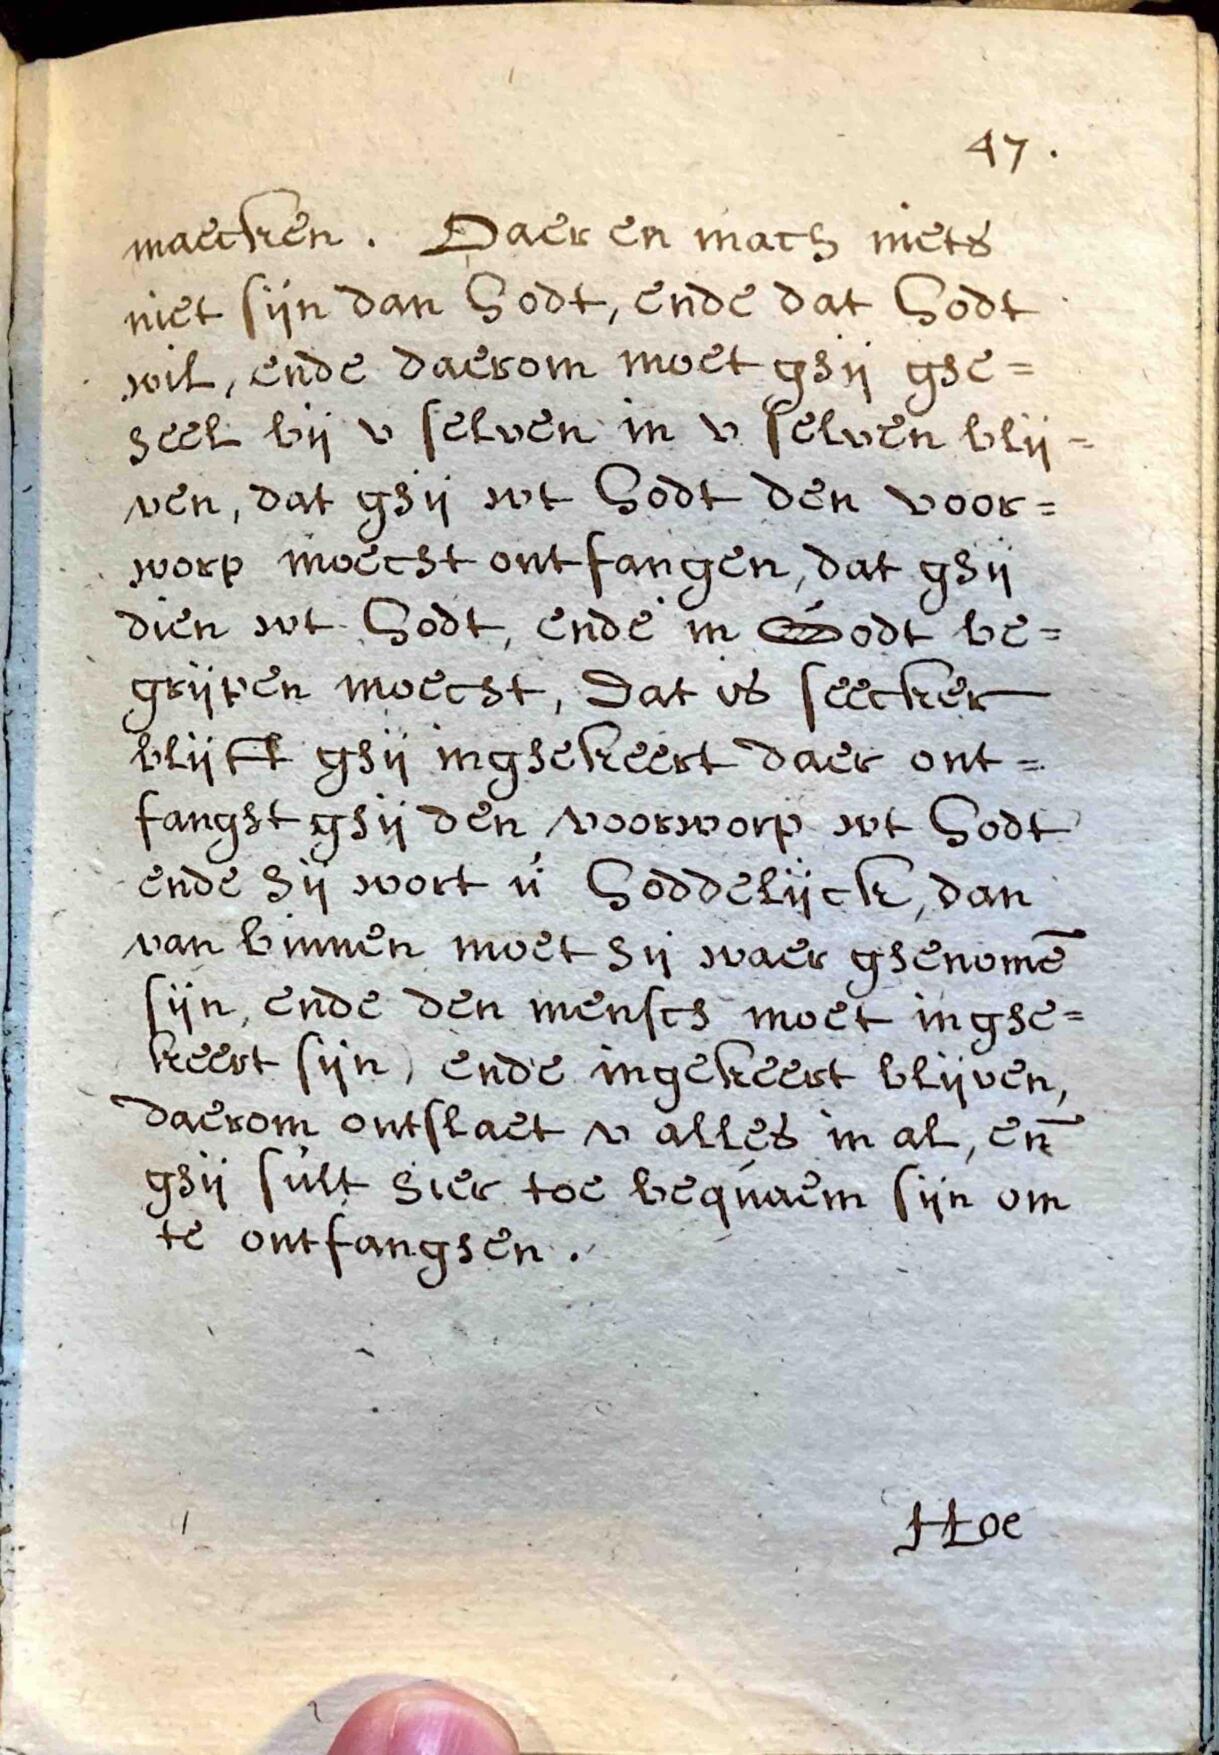 47.
maecken. Daer en mach niets
niet sijn dan Godt, ende dat Godt
wil, ende daerom moet ghij ghe=
heel bij v selven in v selven blij=
ven, dat ghij wt Godt den voor=
worp moecht ontfangen, dat ghij
dien wt Godt, ende in Godt be=
grijpen moecht, Dat is seecker
blijft ghij inghekeert daer ont=
fanght ghij den voorworp wt Godt
ende hij wort ú Goddelijck, dan
van binnen moet hij waer ghenomē
sijn, ende den mensch moet inghe=
keert sijn, ende ingekeert blijven,
daerom ontslaet v alles in al, en̄
ghij súlt hier toe beqúaem sijn om
te ontfanghen.
Hoe